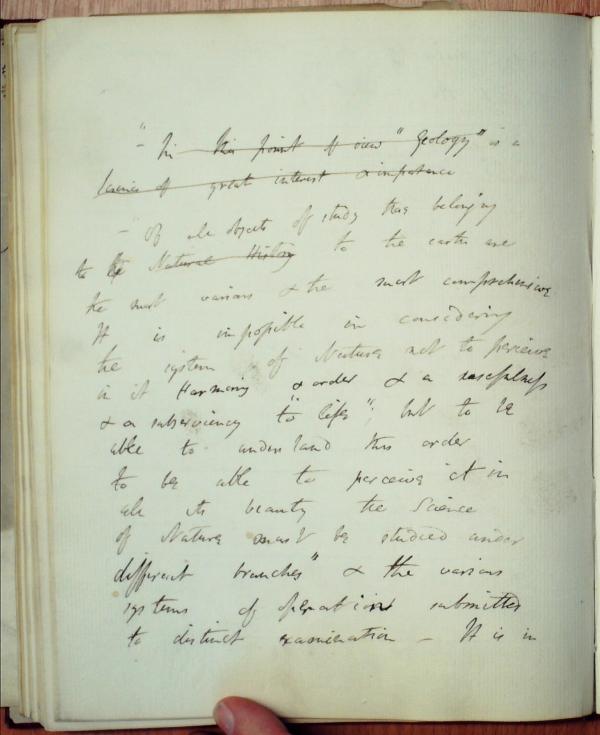 "- In this point of view "Geology" is a
science of great interest & importance
- "Of all objects of study those belonging
to the Natural History to the earth are
the most various & the most comprehensive
It is impossible in considering
the system of Nature not to perceive
in it Harmony & order & a usefulness
& a subserviency "to life"; but to be
able to understand this order
to be able to perceive it in
all its beauty the Science
of Nature must be studied under
different branches" & the various
systems of operations submitted
to distinct examination - It is in